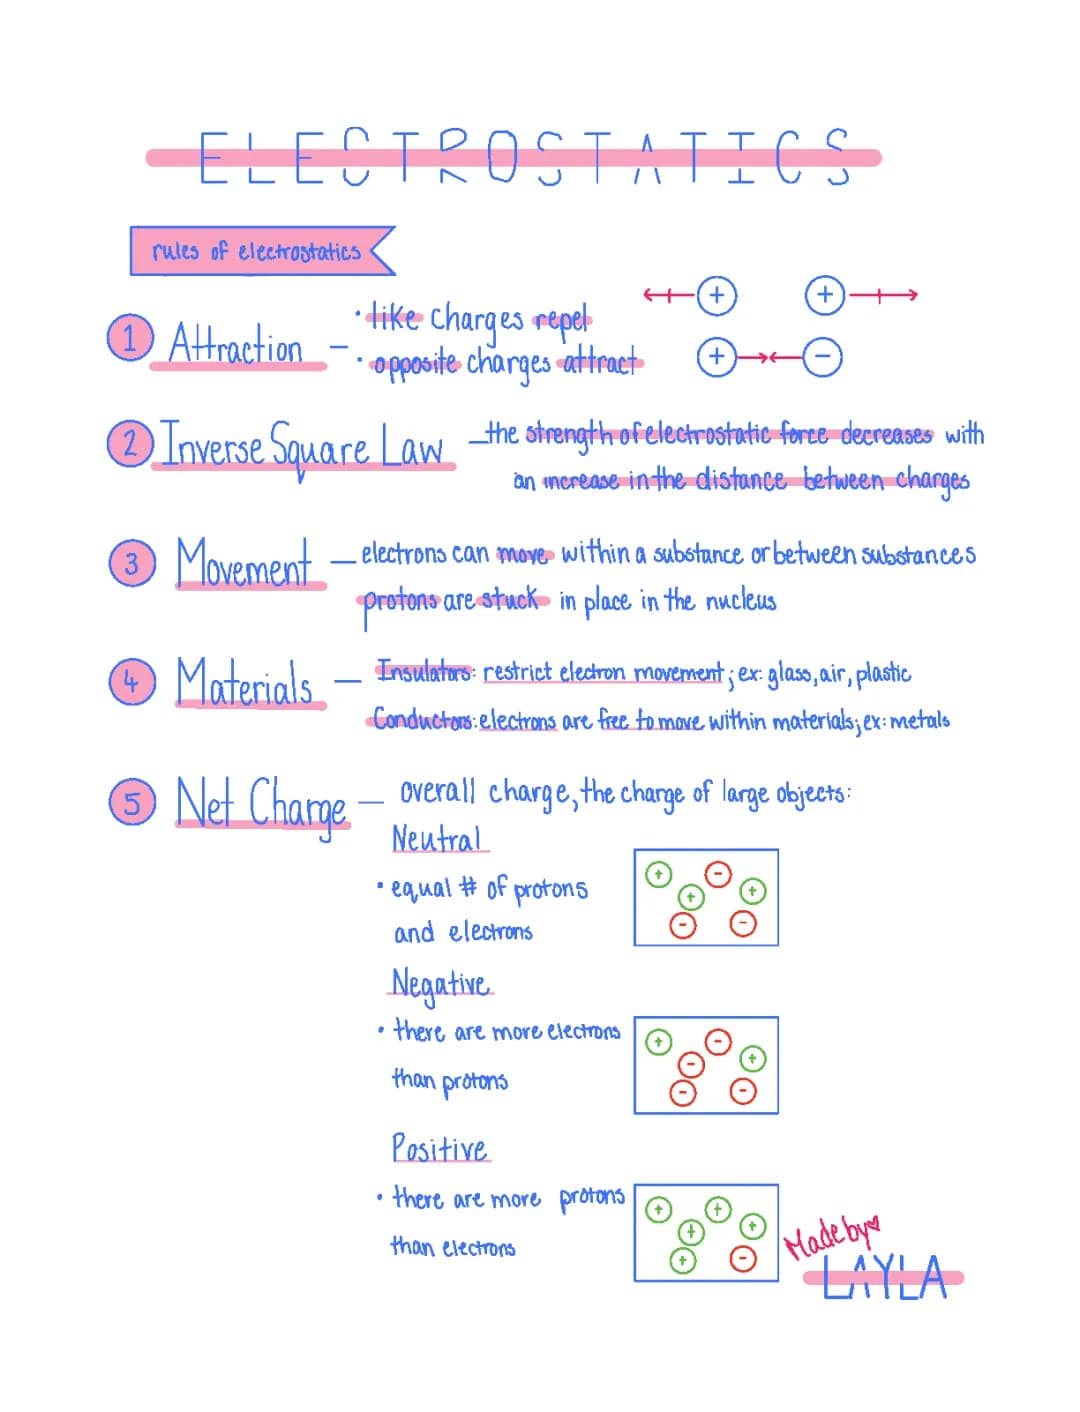 ELECTROSTATICS
rules of electrostatics
1 Attraction - • like charges repel
• opposite charges attract
+ +
+ -
2 Inverse Square Law - the strength of electrostatic force decreases with
an increase in the distance between charges
3 Movement - electrons can move within a substance or between substances
protons are stuck in place in the nucleus
4 Materials - Insulators: restrict electron movement; ex: glass, air, plastic
Conductors: electrons are free to move within materials; ex: metals
5 Net Charge - overall charge, the charge of large objects:
Neutral
• equal # of protons
and electrons
+ - + + - -
Negative
• there are more electrons
than protons
+ - - + - -
Positive
• there are more protons
than electrons
+ + + + + -
Made by ♥
LAYLA